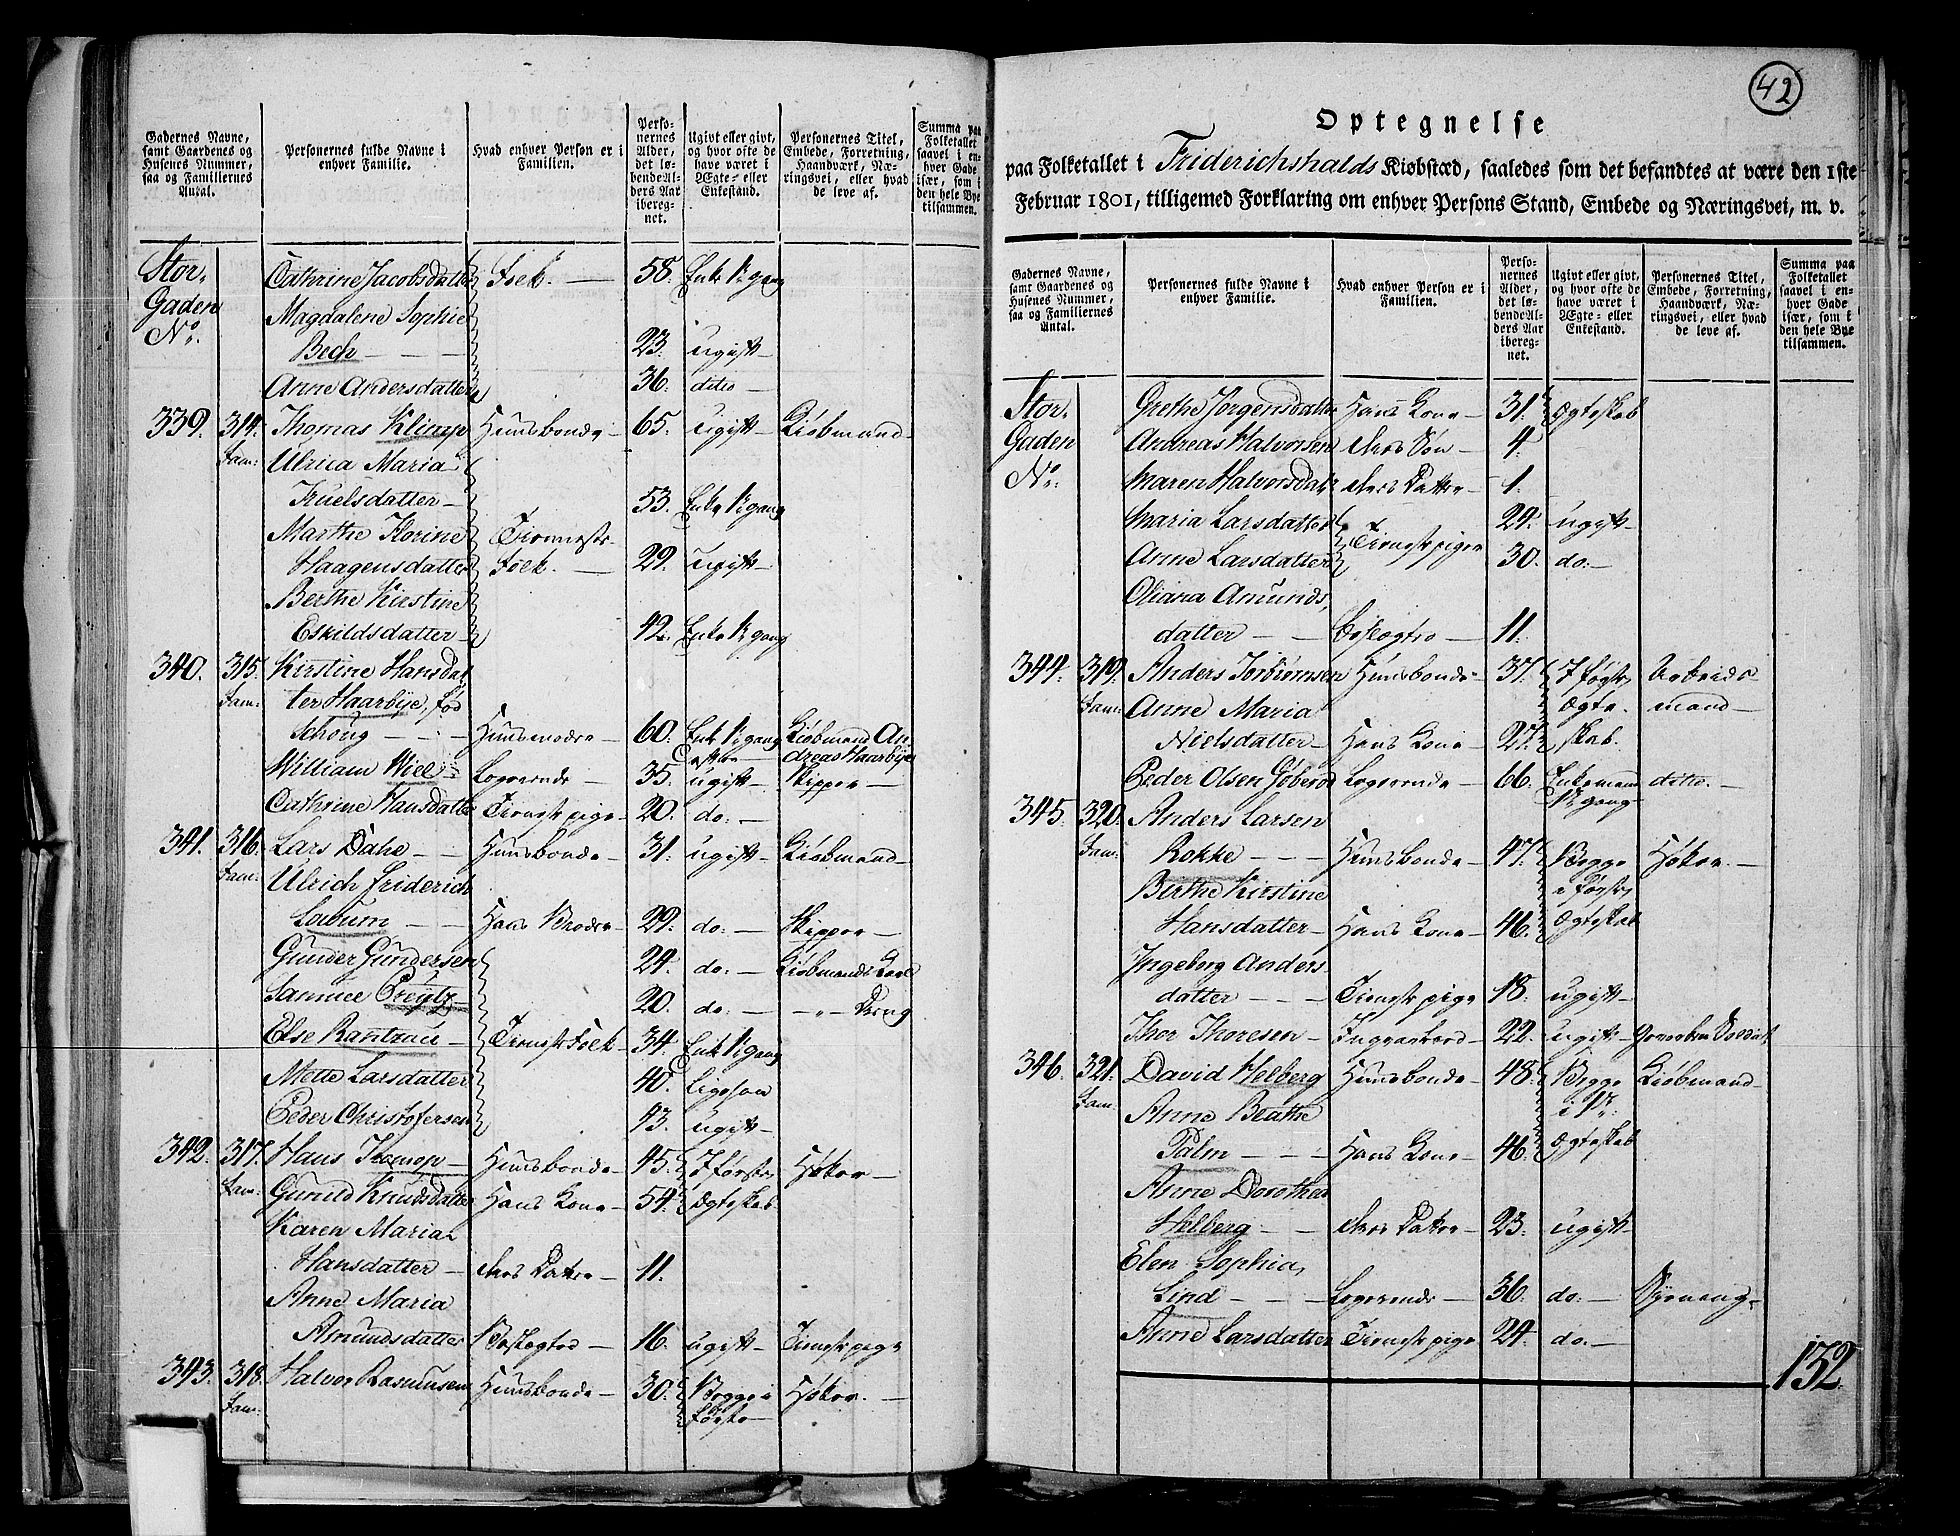 Gadernes Navne, samt Gaardenes og Husenes Nummer, saa og Familiernes Antal.
Personernes fulde Navne i enhver Familie.
Hvad enhver Person er i Familien.
Personernes Alder, det løbende Alders Aar iberegnet.
Ugivt eller givt, og hvor ofte de have været i Ægte- eller Enkestand.
Personernes Titel, Embede, Forretning, Haandværk, Næringsvei, eller hvad de leve af.
Summa paa Folketallet saavel i enhver Gade især, som i den hele Bye tilsammen.
Stor-Gaden No.
Cathrine Jacobsdatter Folk. — 58. Enke 1te gang
Magdalene Sophie
Bech — — 23. ugift —
Anne Andersdatter 36. ditto —
339. 314. Fam: Thomas Klimp Huusbonde — 65. ugift — Kiøbmand —
Ulrica Maria
Truelsdatter — 53. Enke 1te gang
Marthe Florine Tienneste-
Haagensdatter Folk. — 29. ugift —
Berthe Kirstine
Eskildsdatter — 42. Enke 1te gang
340. 315. Fam: Kirstine Hansdat
ter Haarbye, fød
Schöug — — Huusmoder — 60. Enke 1te gang Kiøbmand Andreas Haarbye
William Wiel — Logerende — 35. ugift — Skipper —
Cathrine Hansdatter Tienestepige — 20. do. —
341. 316. Fam: Lars Dahe — — Huusbonde — 31. ugift — Kiøbmand —
Ulrich Friderich
Laüum — — Hans Broder — 29. do. — Skipper —
Gunder Gundersen 24. do. — Kiøbmands Karl
Samuel Preÿtz — 20. do. — — " — Dreng
Else Rantzau — Tieneste Folk — 34. Enke 1te gang
Mette Larsdatter 40. ligesaa
Peder Christofersen 43. ugift —
342. 317. Fam: Hans Thomsp — Huusbonde — 45. I første Høker —
Gunild Knudsdatter Hans Kone — 54. Ægteskab
Karen Maria
Hansdatter — deres Datter — 11.
Anne Maria
Amundsdatter Kostegted — 16. ugift — Tienestepige
343. 318. Fam: Halvor Rasmusen Huusbonde — 30. Begge i første — Høker. —
42
Optegnelse
paa Folketallet i Friderichshalds Kiøbstæd, saaledes som det befandtes at være den 1ste
Februar 1801, tilligemed Forklaring om enhver Persons Stand, Embede og Næringsvei, m. v.
Gadernes Navne, samt Gaardenes og Husenes Nummer, saa og Familiernes Antal.
Personernes fulde Navne i enhver Familie.
Hvad enhver Person er i Familien.
Personernes Alder, det løbende Alders Aar iberegnet.
Ugivt eller givt, og hvor ofte de have været i Ægte- eller Enkestand.
Personernes Titel, Embede, Forretning, Haandværk, Næringsvei, eller hvad de leve af.
Summa paa Folketallet saavel i enhver Gade især, som i den hele Bye tilsammen.
Stor-Gaden No.
Grethe Jørgensdatter Hans Kone — 31. Ægteskab
Andreas Halvorsen deres Søn — 4.
Maren Halvorsdatr deres Datter — 1.
Maria Larsdatter 24. ugift —
Anne Larsdatter Tienestepiger 30. do. —
Oliana Amunds,
datter — — 11.
344. 319. Fam: Anders Torbiørnsen Huusbonde — 37. I første Arbeids-
Anne Maria Ægte- mand —
Nielsdatter — Hans Kone — 27. skab.
Peder Olsen Logerende — 66. Enkemand 1te gang — ditto. —
345. 320. Fam: Anders Larsen
Rokke — — Huusbonde — 47. Begge Høker. —
Birthe Kirstine i første
Hansdatter — Hans Kone — 46. Ægteskab
Ingeborg Anders
datter — — Tienestepige — 18. ugift —
Thor Thoresen — 22. ugift — Soldat
346. 321. Fam: David Helberg Huusbonde — 48. Begge Kiøbmand —
Anne Beathe i 1te
Palm — — Hans Kone — 46. Ægteskab
Anne Dorothea
Helberg — — deres Datter — 23. ugift —
Elen Sophia,
Lind — — Logerende — 36. do. —
Anne Larsdatter Tienestepige — 24. do. —
132.